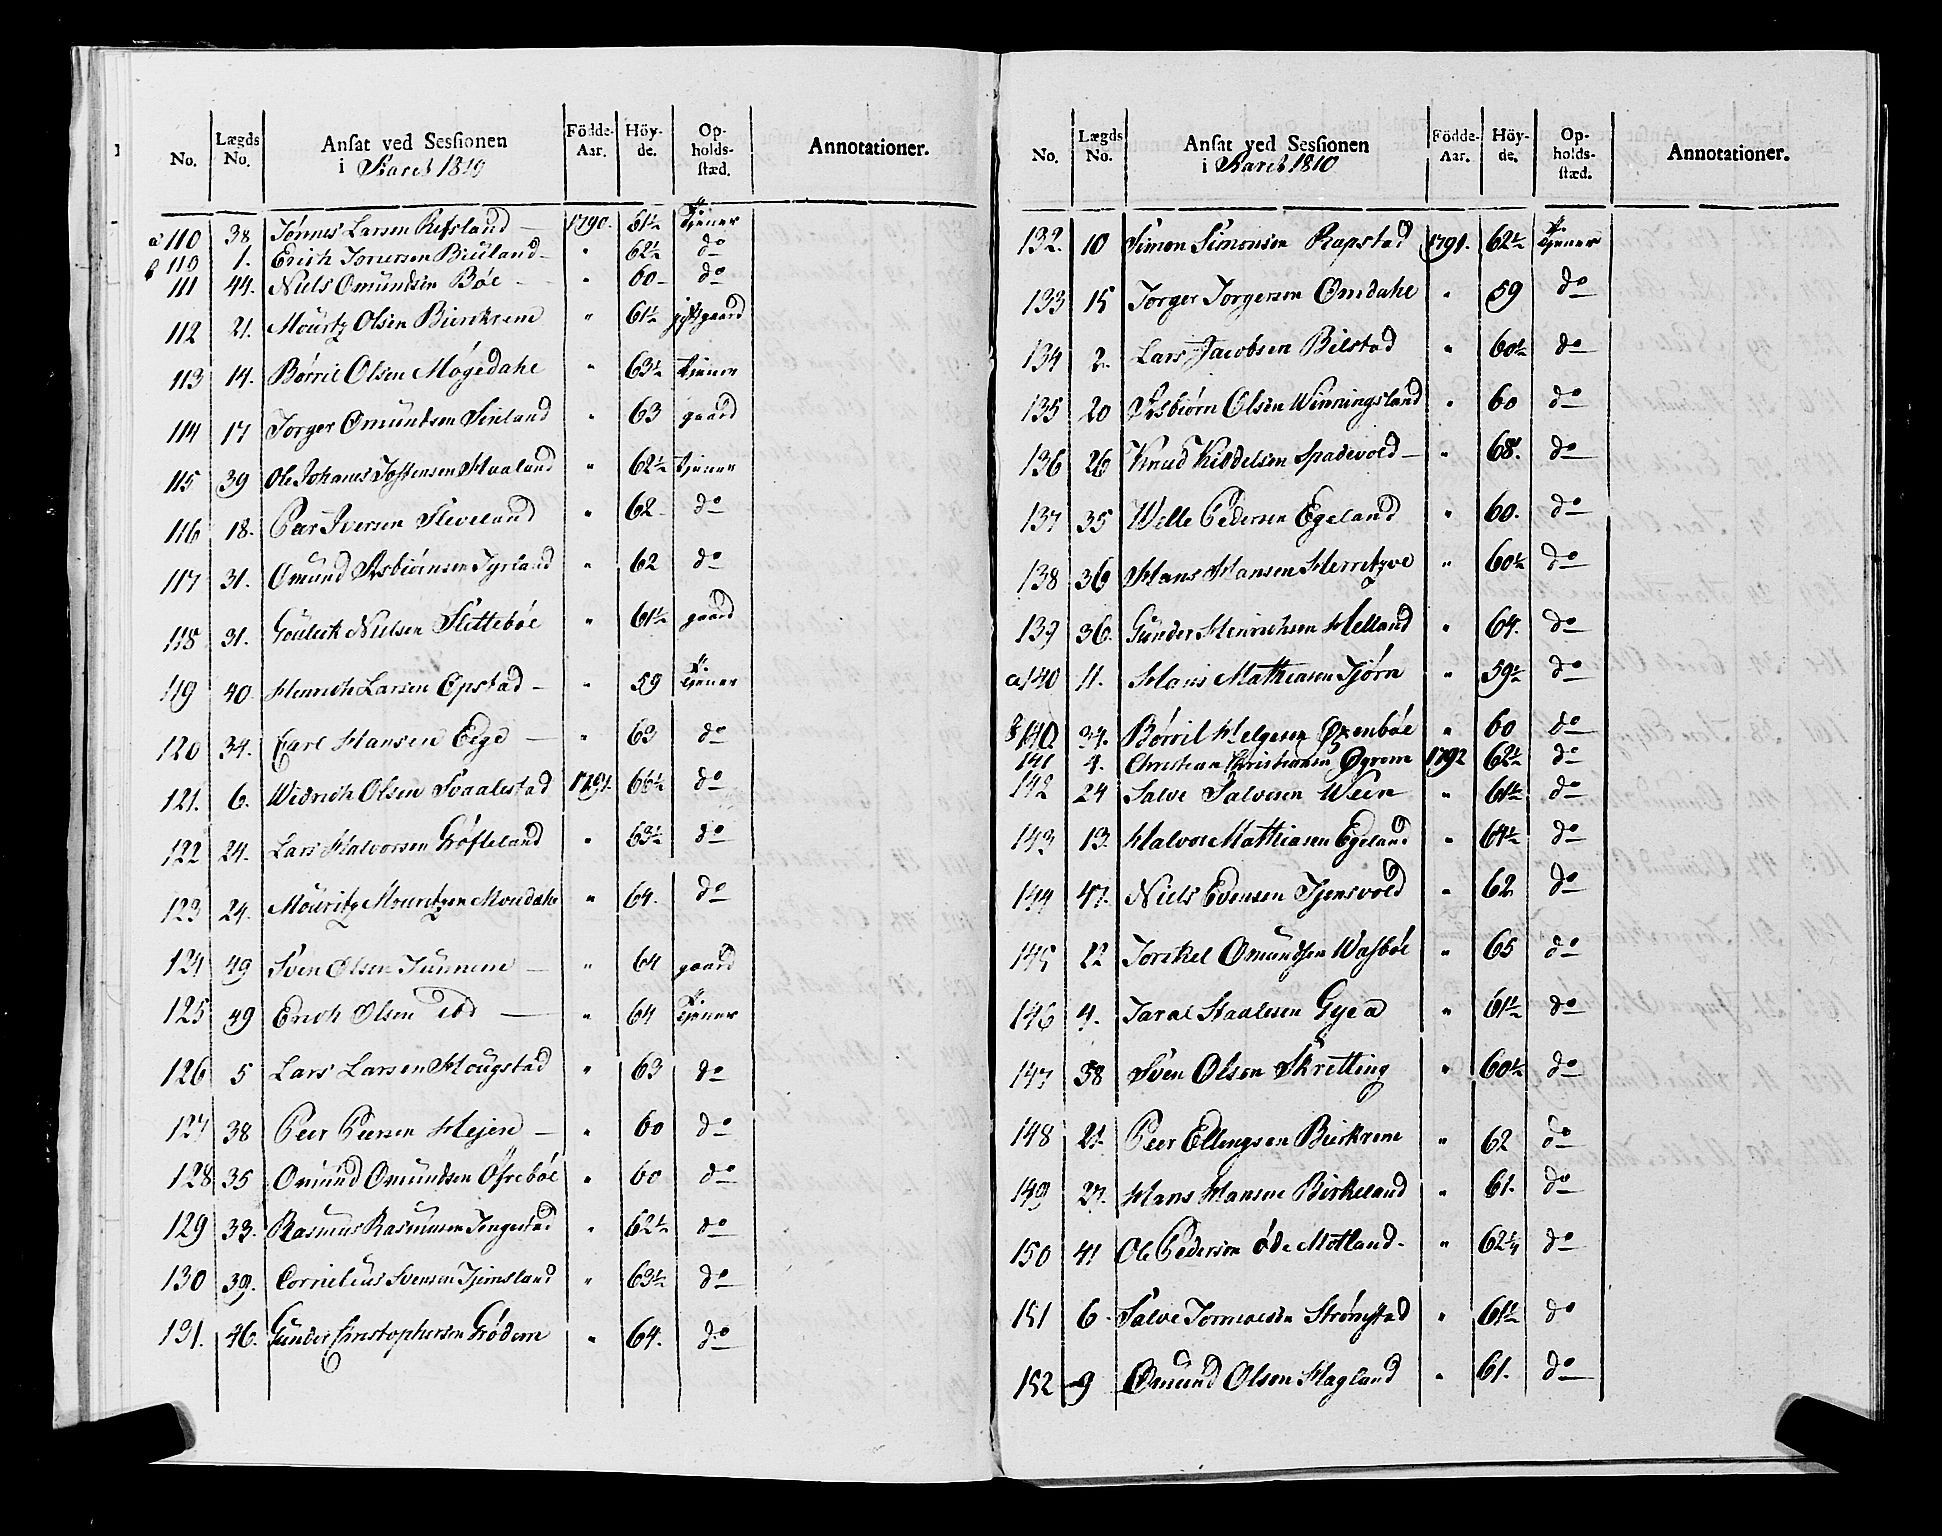 No. Lægds No. Ansat ved Sessionen i Aaret 1810 Födde-Aar. Höy-de. Op-holds-stæd. Annotationer.
a 110 38 Tønnes Larsen Refsland — 1790. 61½ Tjener
b 110 1. Erich Tørresen Biuland - " 62½ do
111 44. Niels Omündsen Bøe - " 60 - do
112 21. Mouritz Olsen Bierkrem " 61½ gaard
113 14. Børril Olsen Møgedahl " 63½ Tjener
114 17 Torger Omündsen Sinland " 63 gaard
115 39 Ole Johanes Tostensen Haaland " 62½ Tjener
116 18. Peer Iversen Sleveland " 62 - do
117 31. Omünd Asbiørnsen Tyrland " 62 do
118 31. Goutech Nielsen Slettebøe " 61½ gaard
119 40. Henrich Larsen Opstad - " 59 Tjener
120 34. Carl Hansen Eege — " 63 do
121. 6. Widrich Olsen Svaalestad 1791. 66½ do
122 24. Lars Halvorsen Grøfteland " 63½ do
123 24. Mouritz Mouritzen Mondahl " 64. do
124 49 Sven Olsen Tünnem — " 64 gaard
125 49 Erich Olsen ibd — " 64 Tjener
126 5 Lars Larsen Hougstad " 63 do
127 38 Peer Peersen Hejen — " 60 do
128 35 Omünd Omündsen Øfrebøe " 60 do
129 33. Rasmus Rasmusen Tengestad " 62½ do
130 39. Cornelius Svensen Tjemsland " 63½ do
131. 46. Gunder Christophersen Grødem " 64. do
No. Lægds No. Ansat ved Sessionen i Aaret 1810 Födde-Aar. Höy-de. Op-holds-stæd. Annotationer.
132. 10 Simon Simonsen Rapstad 1791. 62½ Tjener
133 15 Torger Torgersen Omdahl " 59 do
134 2. Lars Jacobsen Bilstad " 60½ do
135 20 Asbiørn Olsen Winningsland " 60 do
136 26 Knud Kiddelsen Spadevold — " 68. do
137 35 Welle Pedersen Egeland " 60. do
138 36 Hans Hansen Herritzve " 60½ do
139 36. Gunder Henrichsen Helland " 64. do
a 140 11. Hans Mathiasen Tjørn " 59½ do
b 140 34. Børril Helgesen Øxenbøe " 60 do
141 4. Christian Christiansen Øgrem 1792 62½ do
142 24 Salve Salvesen Ween " 61½ do
143 13. Halvor Mathiasen Egeland " 64½ do
144 47. Niels Evensen Tjensvold " 62 do
145 22 Torckel Omundsen Wasbøe " 65 do
146 4. Taral Staalesen Gyea " 61½ do
147 38 Sven Olsen Skretting " 60½ do
148 21. Peer Ellingsen Bierkrem " 62 do
149 27. Hans Hansen Birkeland " 61. do
150 41 Ole Pedersen øde Motland - " 62¼ do
151 6 - Salve Tormodsen Strømstad " 61½ do
152 9 Omünd Olsen Hagland " 61. do